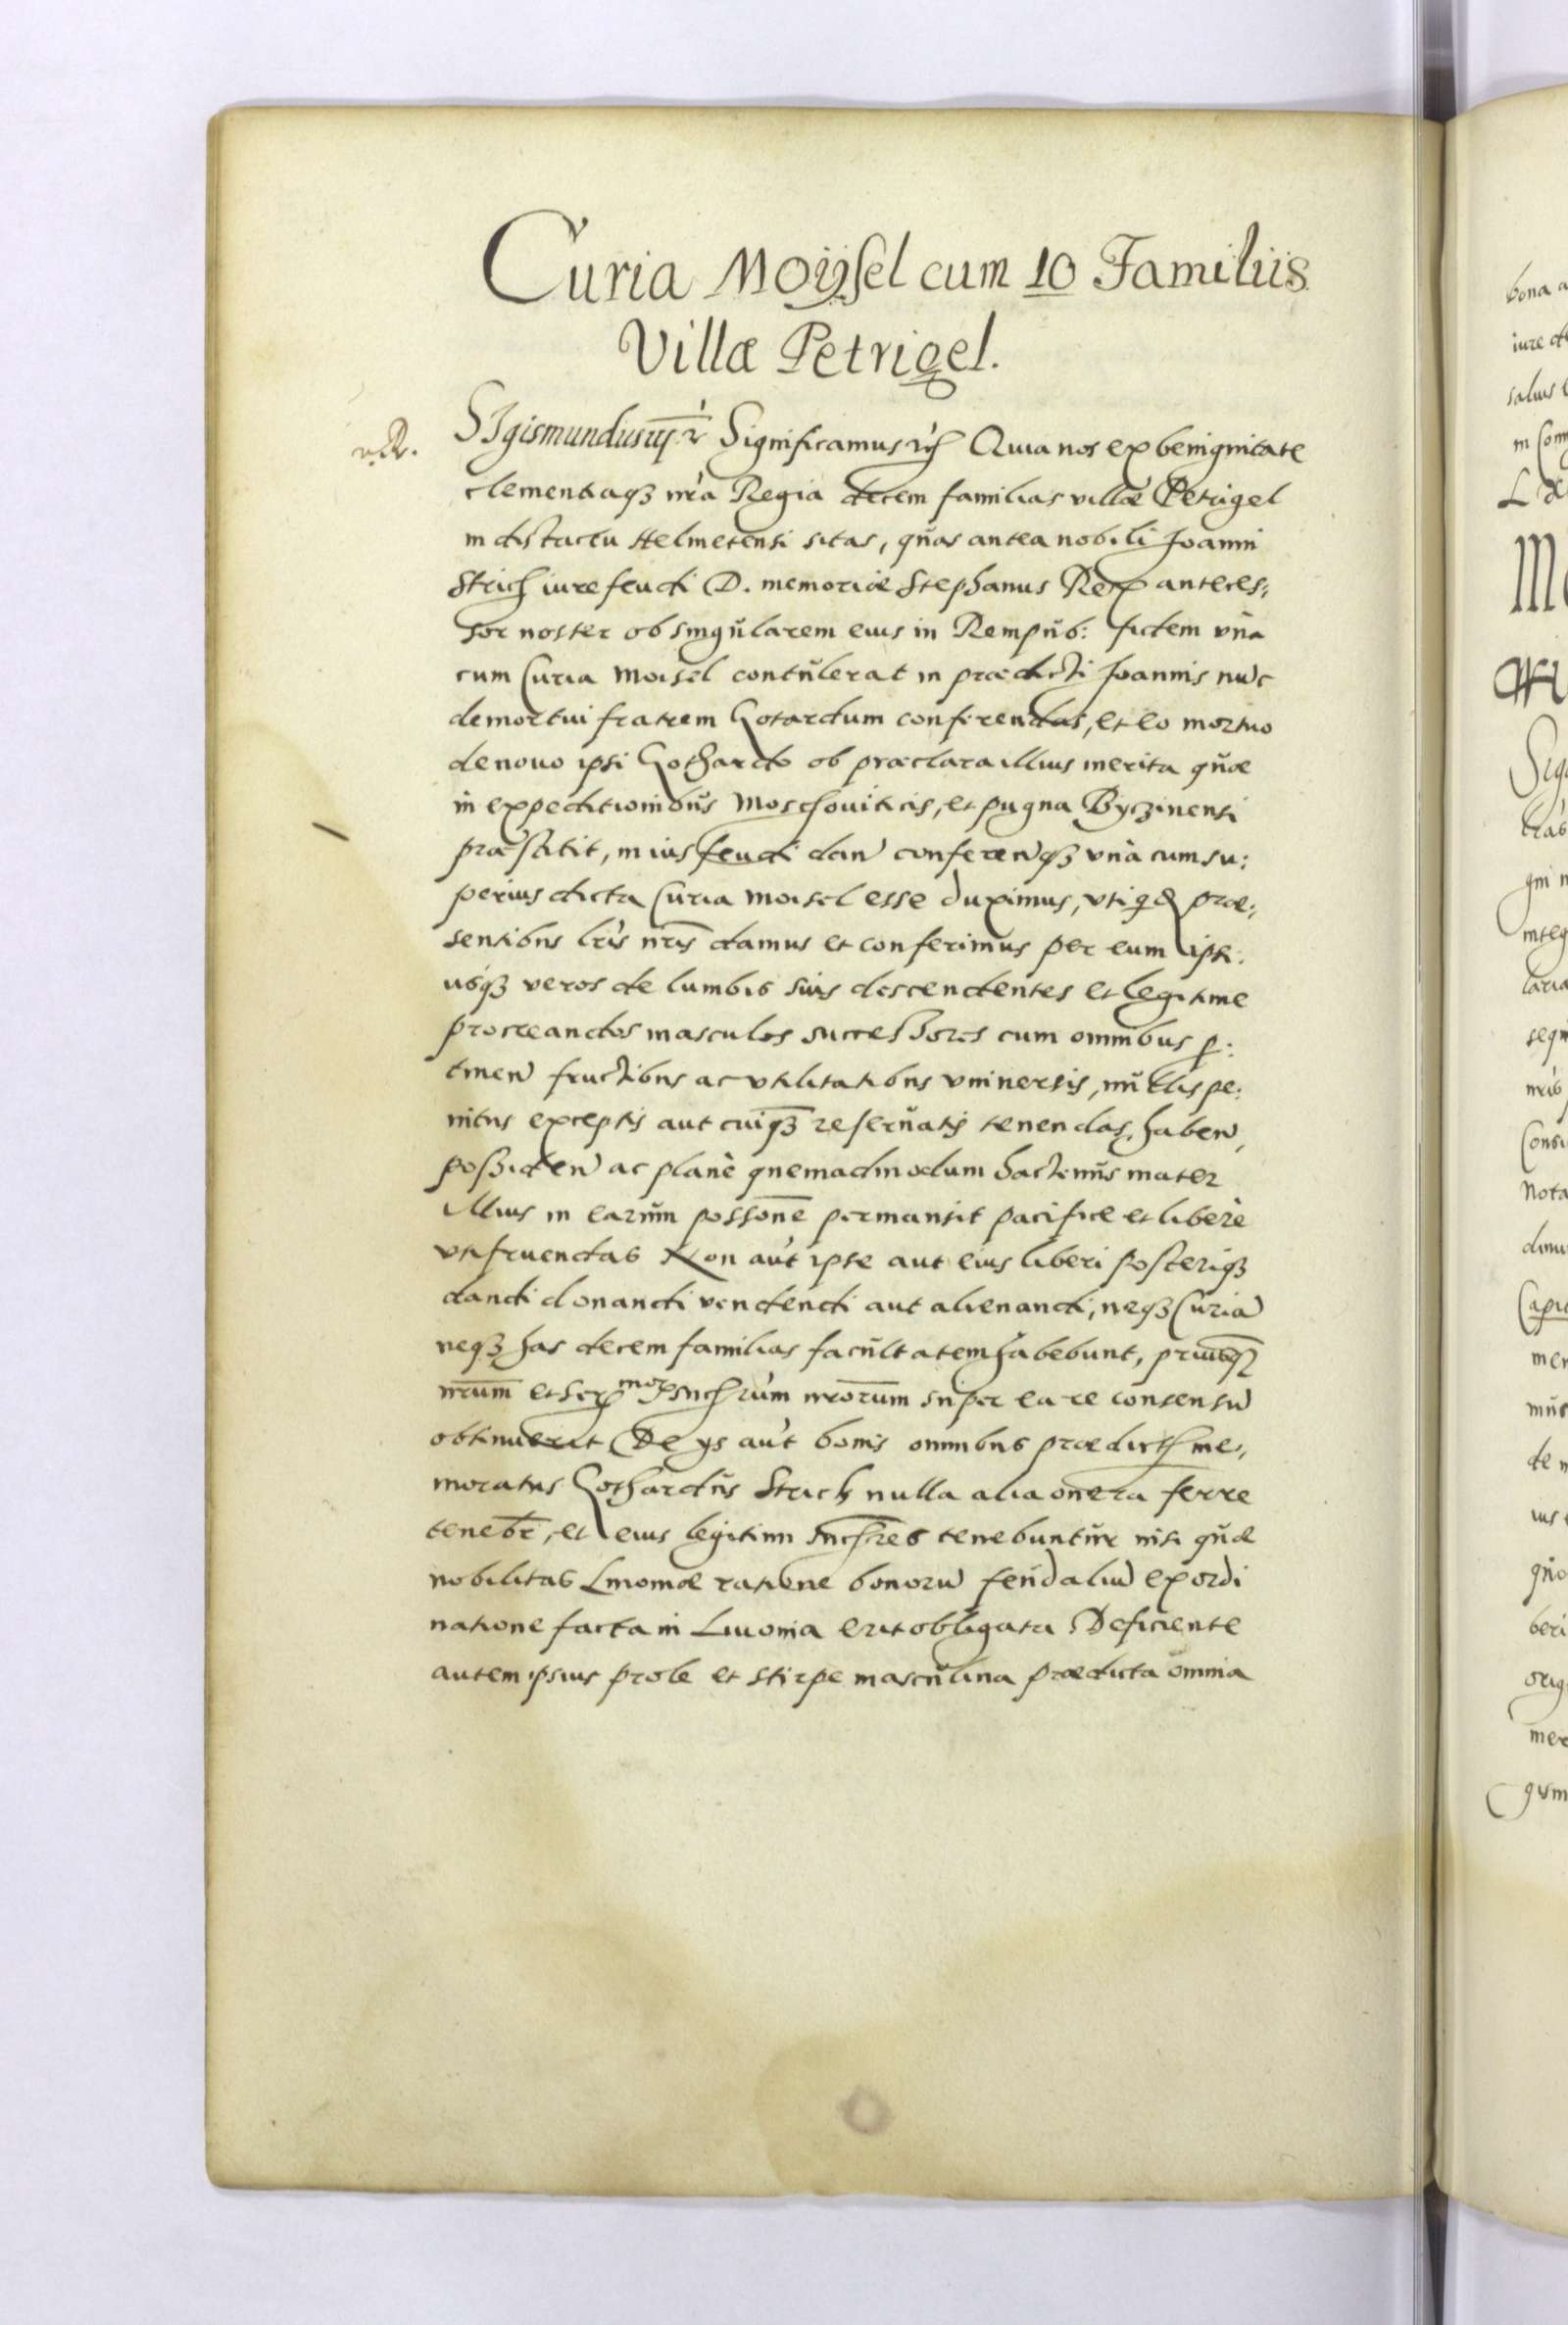 Curia Moÿsel cum 10 Familiis
Villæ Petrigel.
SIgismundus iij r̃ Significamus Quia nos ex benignitate
clementiaq3 nr̃a Regia decem familias villæ Petrigel
in districtu Helmetensi sitas, quas antea nobili Joanni
Strich iure feudi D. memoriæ Stephanus Rex anteces;
sor noster ob singularem eius in Rempub: fidem vnà
cum Curia Moisel contulerat in prædicti Joannis nuc
demortui fratrem Gotardum conferendas, et eo mortuo
denouo ipsi Gothardo ob præclara illius merita quæ
in expeditionibus Moschouiticis, et pugna Byczinensi
præstitit, in ius feudi dan conferenq3 vnà cum su:
perius dicta Curia Moisel esse duximus, vti præ;
sentibus lr̃is nr̃is damus et conferimus per eum ipsi:
usq3 veros de lumbis suis descendentes et legitime
procreandos masculos successores cum omnibus p:
tinen fructibus ac vtilitatibus vniuersis, nullis pe:
nitus exceptis aut cuiq3 reseruatis tenendas, haben,
possiden ac planè quemadmodum hactenus mater
illius in earum possone permansit pacifice et liberè
vtifruendas Non aut ipse aut eius liberi posteriq3
dandi donandi vendendi aut alienandi, neq3 Curia
neq3 has decem familias facultatem habebunt, priusq3
nr̃um et Ser mor Succ rum nrorum super ea re consensu
obtinuerit De ijs aut bonis omnibus prædict me;
moratus Gothardus Strich nulla alia onera ferre
teneb̃r, et eius legitimi Succres tenebuntur nisi quæ
nobilitas Liuoniæ ratione bonoru feudaliu ex ordi
natione facta in Liuonia erit obligata Deficiente
autem ipsius prole et stirpe masculina prædicta omnia